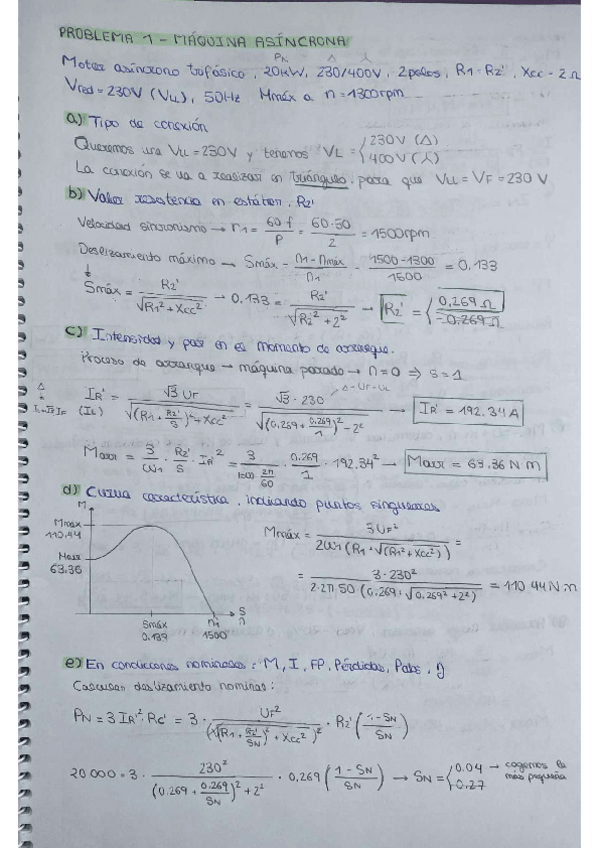 PROBLEMA 1 - MÁQUINA ASÍNCRONA
PN Δ ⅄
Motor asíncrono trifásico, 20kW, 230/400V, 2polos, R1=R2', Xcc = 2 Ω
Vred = 230V (VLL), 50Hz Mmáx a n=1300rpm
a) Tipo de conexión
Queremos una VLL = 230V y tenemos VL = { 230V (Δ) 400V (⅄)
La conexión se va a realizar en triángulo, para que VLL = VF = 230 V
b) Valor resistencia en estátor, R2'
Velocidad sincronismo → n1 = 60 f / P = 60·50 / 2 = 1500rpm
Deslizamiento máximo → Smáx = n1 - nmáx / n1 = 1500-1300 / 1500 = 0,133
Smáx = R2' / √R1² + Xcc² → 0,133 = R2' / √R2² + 2² → R2' = { 0,269 Ω -0,269 Ω
c) Intensidad y par en el momento de arranque.
Proceso de arranque → máquina parada → n=0 ⇒ s=1
Δ - UF = UL
Δ IL=√3 IF (IL) IR' = √3 UF / √(R1 + R2'/S)² + Xcc² = √3 · 230 / √(0,269 + 0,269/1)² - 2² → IR' = 192.34 A
Marr = 3/ω1 · R2'/S · IR'² = 3 / 1500 2π/60 · 0.269/1 · 192.34² → Marr = 63.36 N m
d) Curva característica, indicando puntos singulares
M
Mmax 110.44
Marr 63.36
Smáx 0.133
n1 1500
S n
Mmáx = 3UF² / 2ω1 (R1 + √(R1² + Xcc²)) =
= 3·230² / 2·2π·50 (0,269 + √0,269² + 2²) = 110.44 N·m
e) En condiciones nominales: M, I, FP, Pérdidas, Pabs, η
Calcular deslizamiento nominal:
PN = 3 IR'² · Rc' = 3 · UF² / (√(R1 + R2'/SN)² + Xcc²)² · R2' (1-SN / SN)
20 000 = 3 · 230² / (0.269 + 0.269/SN)² + 2² · 0,269 (1-SN / SN) → SN = { 0.04 → cogemos la más pequeña 0.27